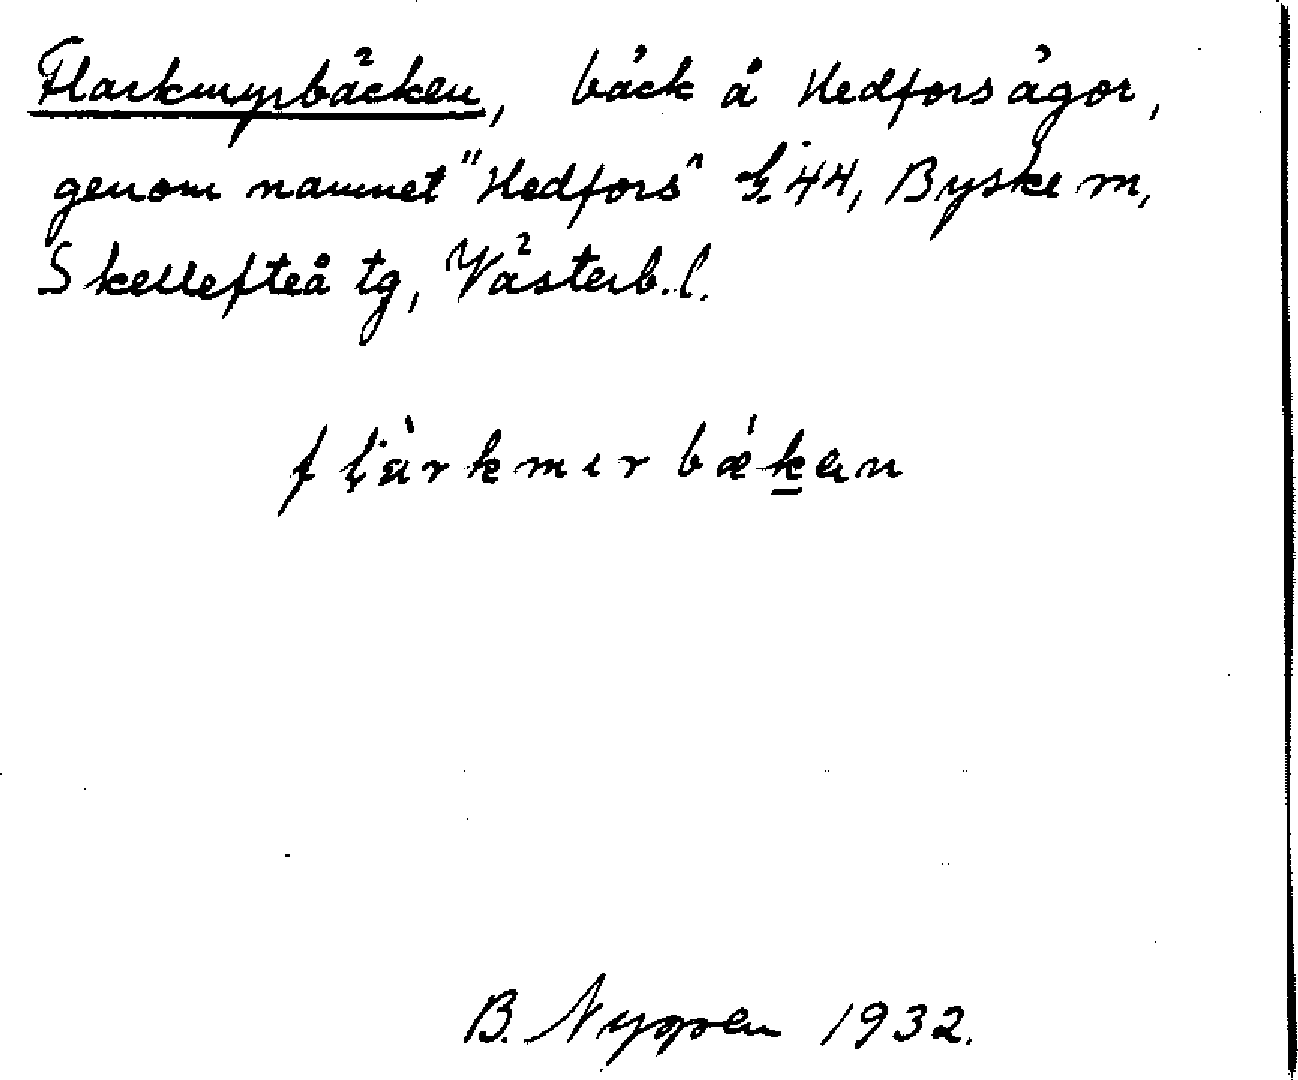 Flarkmyrbäcken, bäck å Hedfors ägor,
genom namnet "Hedfors" E. 44, Byske m,
Skellefteå tg, Västerb. l.
flàrkmırbǽḵen
B. Nygren 1932.